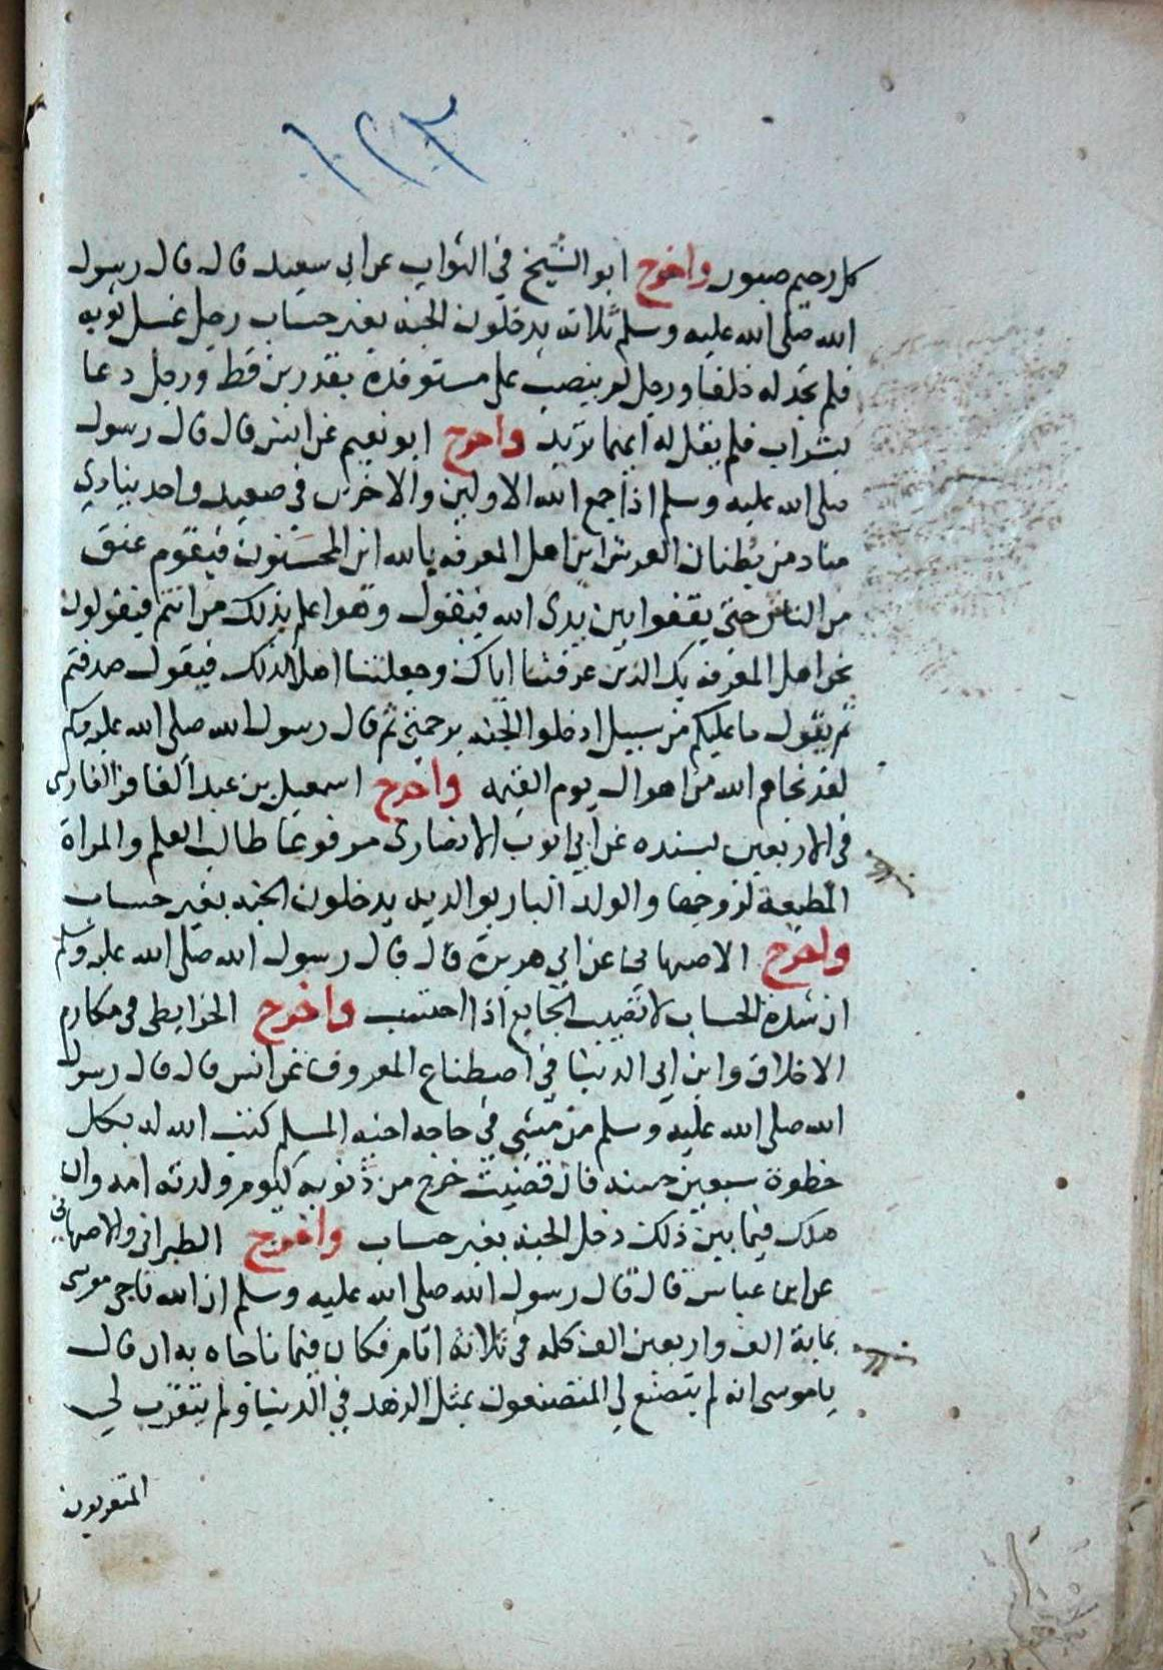 ١٢٣
كل رحيم صبور واخرج ابو الشيخ في الثواب عن ابي سعيد قال قال رسول
الله صلى الله عليه وسلم ثلاثة يدخلون الجنه بغير حساب رجل غسل ثوبه
فلم يجد له خلفا ورجل لم ينصب على مستوقدة بقدرين قط ورجل دعا
بشراب فلم يقل له ايهما تريد واخرج ابو نعيم عن انس قال قال رسول
صلى الله عليه وسلم اذا جمع الله الاولين والاخرين في صعيد واحد ينادي
مناد من بطنان العرش اين اهل المعرفه بالله اين المحسنون فيقوم عنق
من الناس حتى يقفوا بين يدي الله فيقول وهو اعلم بذلك من انتم فيقولون
نحن اهل المعرفه بك الذين عرفتنا اياك وجعلتنا اهلا لذلك فيقول صدقتم
ثم يقول ما عليكم من سبيل ادخلوا الجنه برحمتي ثم قال رسول الله صلى الله عليه وسلم
لقد نجاهم الله من اهوال يوم القيمه واخرج اسمعيل بن عبد الغافر الفارسي
في الاربعين بسنده عن ابي ايوب الانصاري مرفوعا طالب العلم والمراة
المطيعة لزوجها والولد البار بوالديه يدخلون الجنه بغير حساب
واخرج الاصبهاني عن ابي هريرة قال قال رسول الله صلى الله عليه وسلم
ان شدة الحساب لا تصيب الجايع اذا احتسب واخرج الخرايطي في مكارم
الاخلاق وابن ابي الدنيا في اصطناع المعروف عن انس قال قال رسول
الله صلى الله عليه وسلم من مشى في حاجه اخيه المسلم كتب الله له بكل
خطوة سبعين حسنه فان قضيت خرج من ذنوبه كيوم ولدته امه وان
هلك فيما بين ذلك دخل الجنه بغير حساب واخرج الطبراني والاصبهاني
عن ابن عباس قال قال رسول الله صلى الله عليه وسلم ان الله ناجى موسى
بماية الف واربعين الف كلمه في ثلاثة ايام فكان فيما ناجاه به ان قال
ياموسى انه لم يتصنع لي المتصنعون بمثل الزهد في الدنيا ولم يتقرب لي
المتقربون